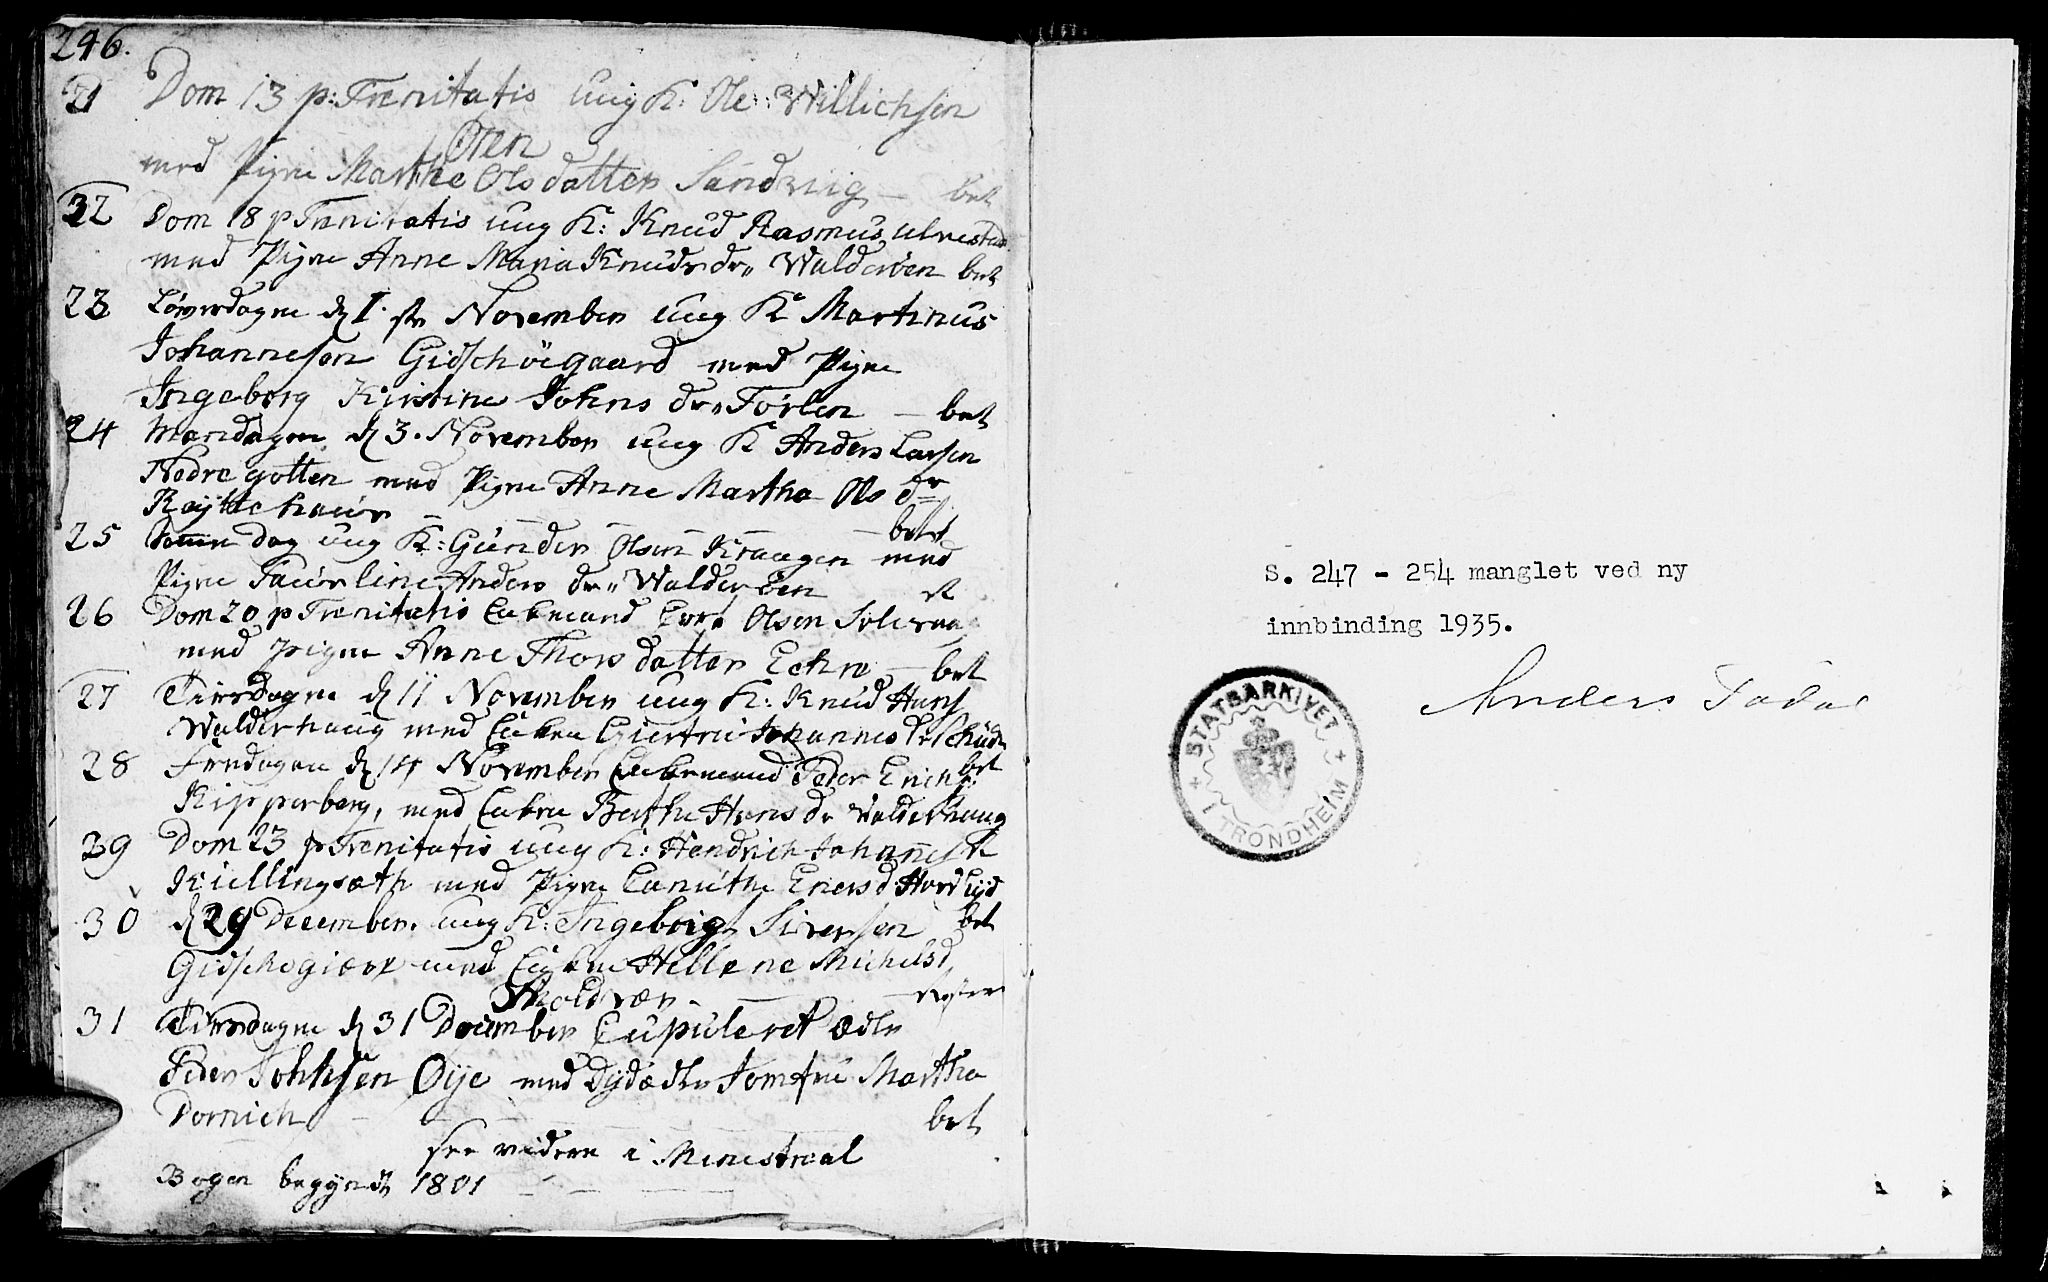 246.
21 Dom 13 p: Trenitatis ung K: Ole Willichsen
Øren
med Pigen Marthe Olsdatter Sandvuig — bet
22 Dom 18 p Trenitatis ung K: Knud Rasmus Ulvestad
med Pigen Anne Maria Knuds dr„ Walderöen bet
23 Löverdagen d 1. ste November ung K Martinus
Johannesen Gidschöegaard med Pigen
Ingeborg Kirstine Johns dr„ Törlen — bet
24 Mandagen d 3. November ung K Anders Larsen
Nedregotten med Pigen Anne Martha Ols dr
— bet
25 Samme Dag ung K: Gunder Olsen Kraagen med
Pigen Anders dr„ Walderöen
26 Dom 20 p Trenitatis Enkemand Olsen
med Pigen Anne Thors datter Echre — bet
27 Tirsdagen d 11 November ung K: Knud Hans
Walderhaug med Enken Giertru Johannes
28 Fredagen d 14 November Enkemand Peder Erichs bet
Kipperberg, med Enken Berthe Hans dr Walderhaug
29 Dom 23 p Trenitatis ung K: Hendrich Johannes
Killingsæth med Pigen Canuthe
30 d 29 December. ung K: Ingebrigt Siversen bet
Gidschegierde med Enken Hellene Michelsd
Moldvær — 
31 Tirsdagen d 31 December Cupuleret Ædle
Peder Johhsen Öije med Dydædle Jomfru Martha
Dornich — bet
see videre i Menestreal
Bogen begyndt 1801
S. 247 - 254 manglet ved ny
innbinding 1935.
Anders Todal
STATSARKIVET
I TRONDHEIM